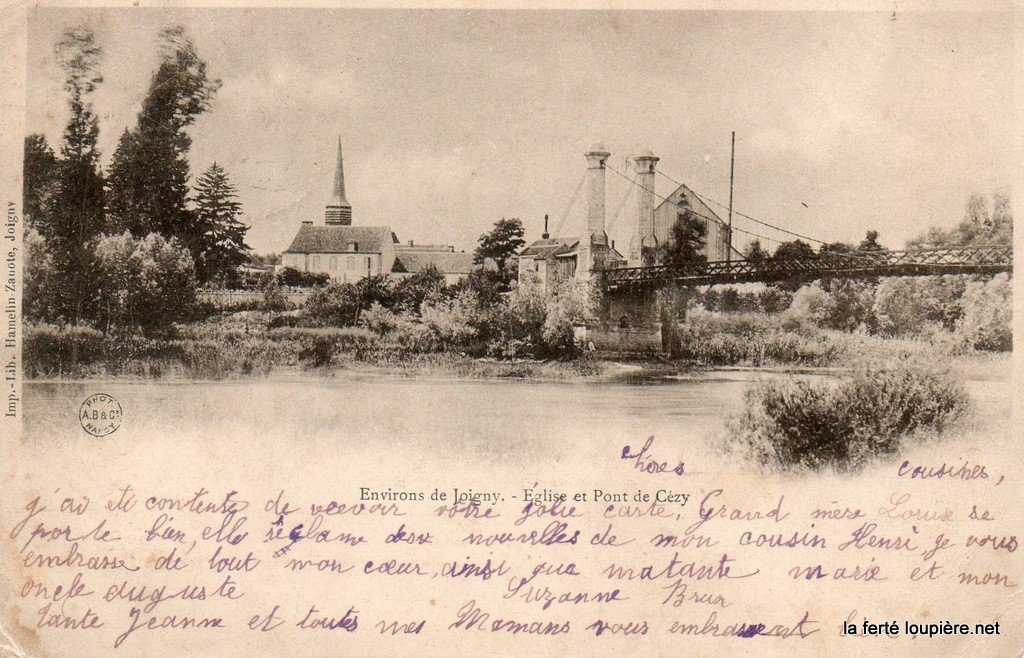 Imp.-Lib. Hamelin-Zanote, Joigny
PHOT
A.B & Cie
NANCY
Environs de Joigny. - Eglise et Pont de Cézy
Chères cousines,
j'ai été contente de recevoir votre jolie carte, Grand mère Louise se
porte bien, elle réclame des nouvelles de mon cousin Henri, je vous
embrasse de tout mon cœur, ainsi que matante marie et mon
oncle auguste Suzanne Brun
tante Jeanne et toutes mes Mamans vous embrassent
la ferté loupière.net